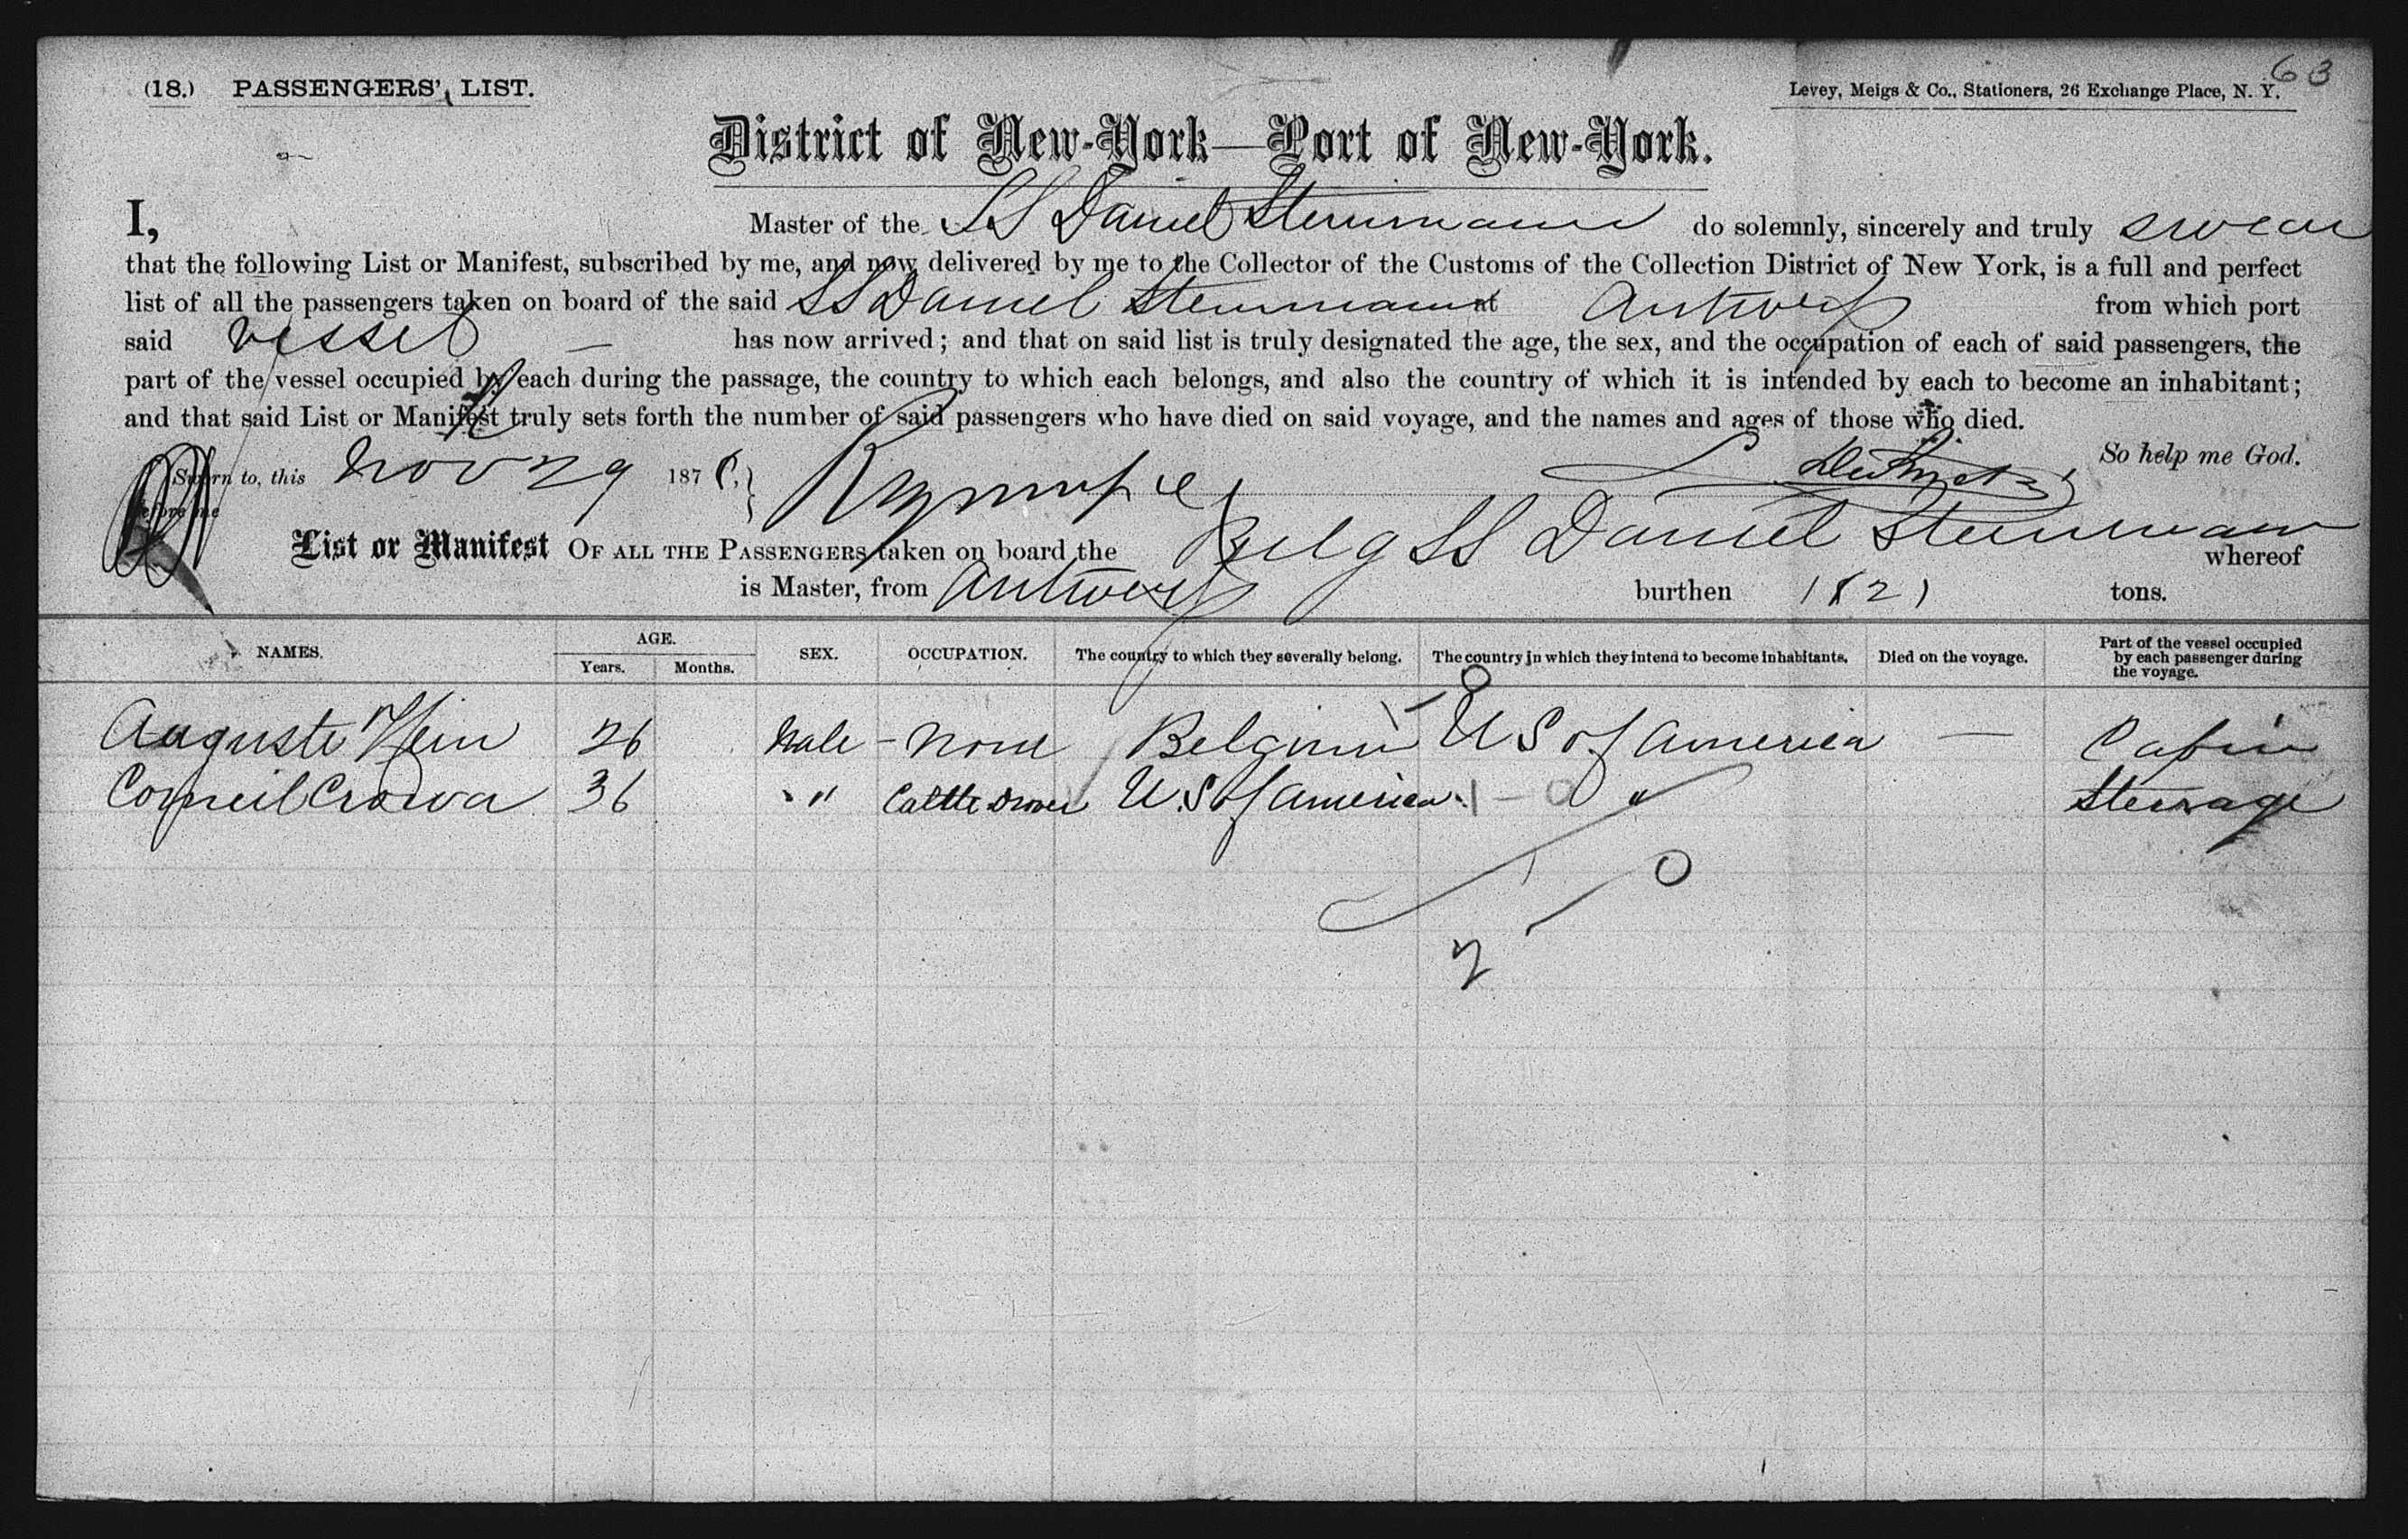 63
(18.) PASSENGERS' LIST. Levey, Meigs & Co., Stationers, 26 Exchange Place, N. Y.
District of New-York—Port of New-York.
I, Master of the SS Daniel Steinmann do solemnly, sincerely and truly swear
that the following List or Manifest, subscribed by me, and now delivered by me to the Collector of the Customs of the Collection District of New York, is a full and perfect
list of all the passengers taken on board of the said SS Daniel Steinmann at Antwerp from which port
said vessel — has now arrived; and that on said list is truly designated the age, the sex, and the occupation of each of said passengers, the
part of the vessel occupied by each during the passage, the country to which each belongs, and also the country of which it is intended by each to become an inhabitant;
and that said List or Manifest truly sets forth the number of said passengers who have died on said voyage, and the names and ages of those who died.
So help me God.
Sworn to, this Nov 29 187
before me
List or Manifest OF ALL THE PASSENGERS taken on board the Belg SS Daniel Steinmann whereof
is Master, from Antwerp burthen 1821 tons.
NAMES. AGE. Years. Months. SEX. OCCUPATION. The country to which they severally belong. The country in which they intend to become inhabitants. Died on the voyage. Part of the vessel occupied by each passenger during the voyage.
Auguste 26 Male - None Belgium U S of America — Cabin
Corneil 36 " Cattle drover U.S of America 1 - 0 " Steerage
0
2